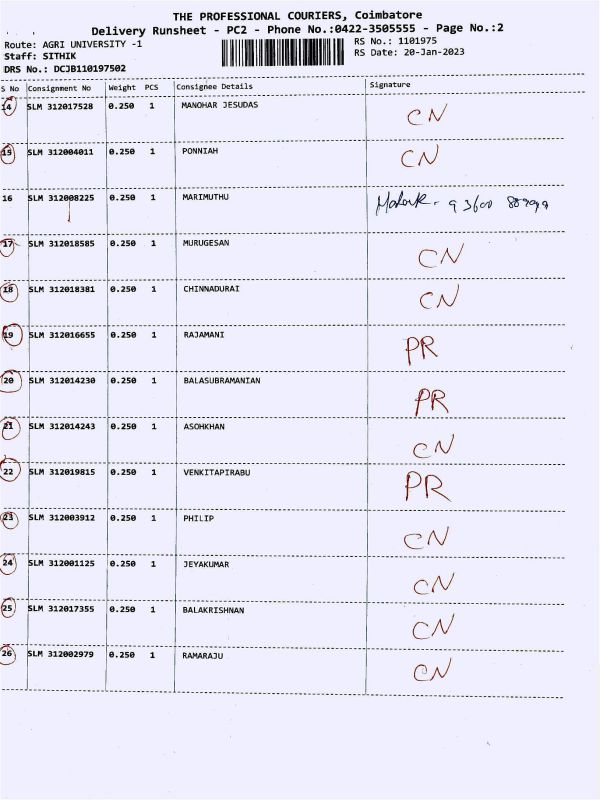 THE PROFESSIONAL COURIERS, Coimbatore
Delivery Runsheet - PC2 - Phone No.:0422-3505555 - Page No.:2
Route: AGRI UNIVERSITY -1 RS No.: 1101975
Staff: SITHIK RS Date: 20-Jan-2023
DRS No.: DCJB110197502
S No Consignment No Weight PCS Consignee Details Signature
14 SLM 312017528 0.250 1 MANOHAR JESUDAS CN
15 SLM 312004011 0.250 1 PONNIAH CN
16 SLM 312008225 0.250 1 MARIMUTHU
17 SLM 312018585 0.250 1 MURUGESAN CN
18 SLM 312018381 0.250 1 CHINNADURAI CN
19 SLM 312016655 0.250 1 RAJAMANI PR
20 SLM 312014230 0.250 1 BALASUBRAMANIAN PR
21 SLM 312014243 0.250 1 ASOHKHAN CN
22 SLM 312019815 0.250 1 VENKITAPIRABU PR
23 SLM 312003912 0.250 1 PHILIP CN
24 SLM 312001125 0.250 1 JEYAKUMAR CN
25 SLM 312017355 0.250 1 BALAKRISHNAN CN
26 SLM 312002979 0.250 1 RAMARAJU CN